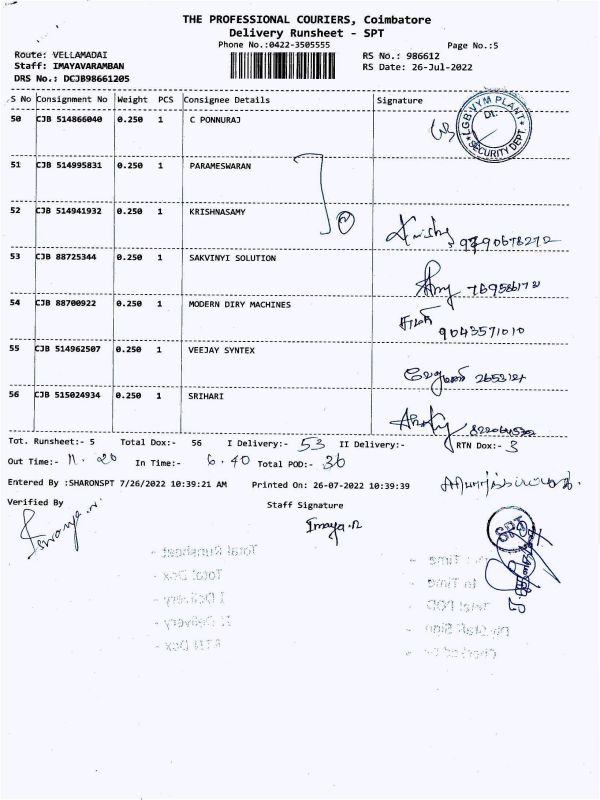 THE PROFESSIONAL COURIERS, Coimbatore
Delivery Runsheet - SPT
Phone No.:0422-3505555
Page No.:5
Route: VELLAMADAI
RS No.: 986612
Staff: IMAYAVARAMBAN
RS Date: 26-Jul-2022
DRS No.: DCJB98661205
S No Consignment No Weight PCS Consignee Details Signature
50 CJB 514866040 0.250 1 C PONNURAJ
LGB VYM PLANT
Dt:
SECURITY DEPT.
51 CJB 514995831 0.250 1 PARAMESWARAN
52 CJB 514941932 0.250 1 KRISHNASAMY
9790678272
53 CJB 88725344 0.250 1 SAKVINYI SOLUTION
54 CJB 88700922 0.250 1 MODERN DIRY MACHINES
9043571010
55 CJB 514962507 0.250 1 VEEJAY SYNTEX
56 CJB 515024934 0.250 1 SRIHARI
Tot. Runsheet:- 5 Total Dox:- 56 I Delivery:- 53 II Delivery:- RTN Dox:- 3
Out Time:- 11.20 In Time:- 6.40 Total POD:- 36
Entered By :SHARONSPT 7/26/2022 10:39:21 AM Printed On: 26-07-2022 10:39:39
Verified By Staff Signature
Imaya.n
Total Runsheet -
Total Dox -
In Time -
I Delivery -
Total POD -
II Delivery -
RTN Dox -